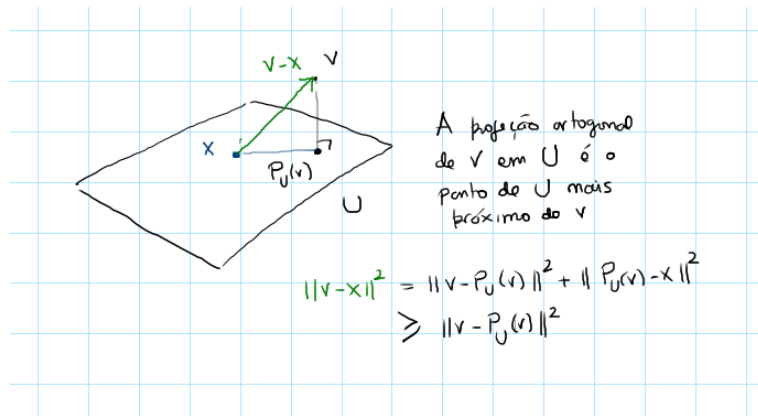 v-x
v
x
P_U(v)
U
A projeção ortogonal
de v em U é o
ponto de U mais
próximo de v
||v-x||² = ||v-P_U(v)||² + ||P_U(v)-x||²
≥ ||v-P_U(v)||²